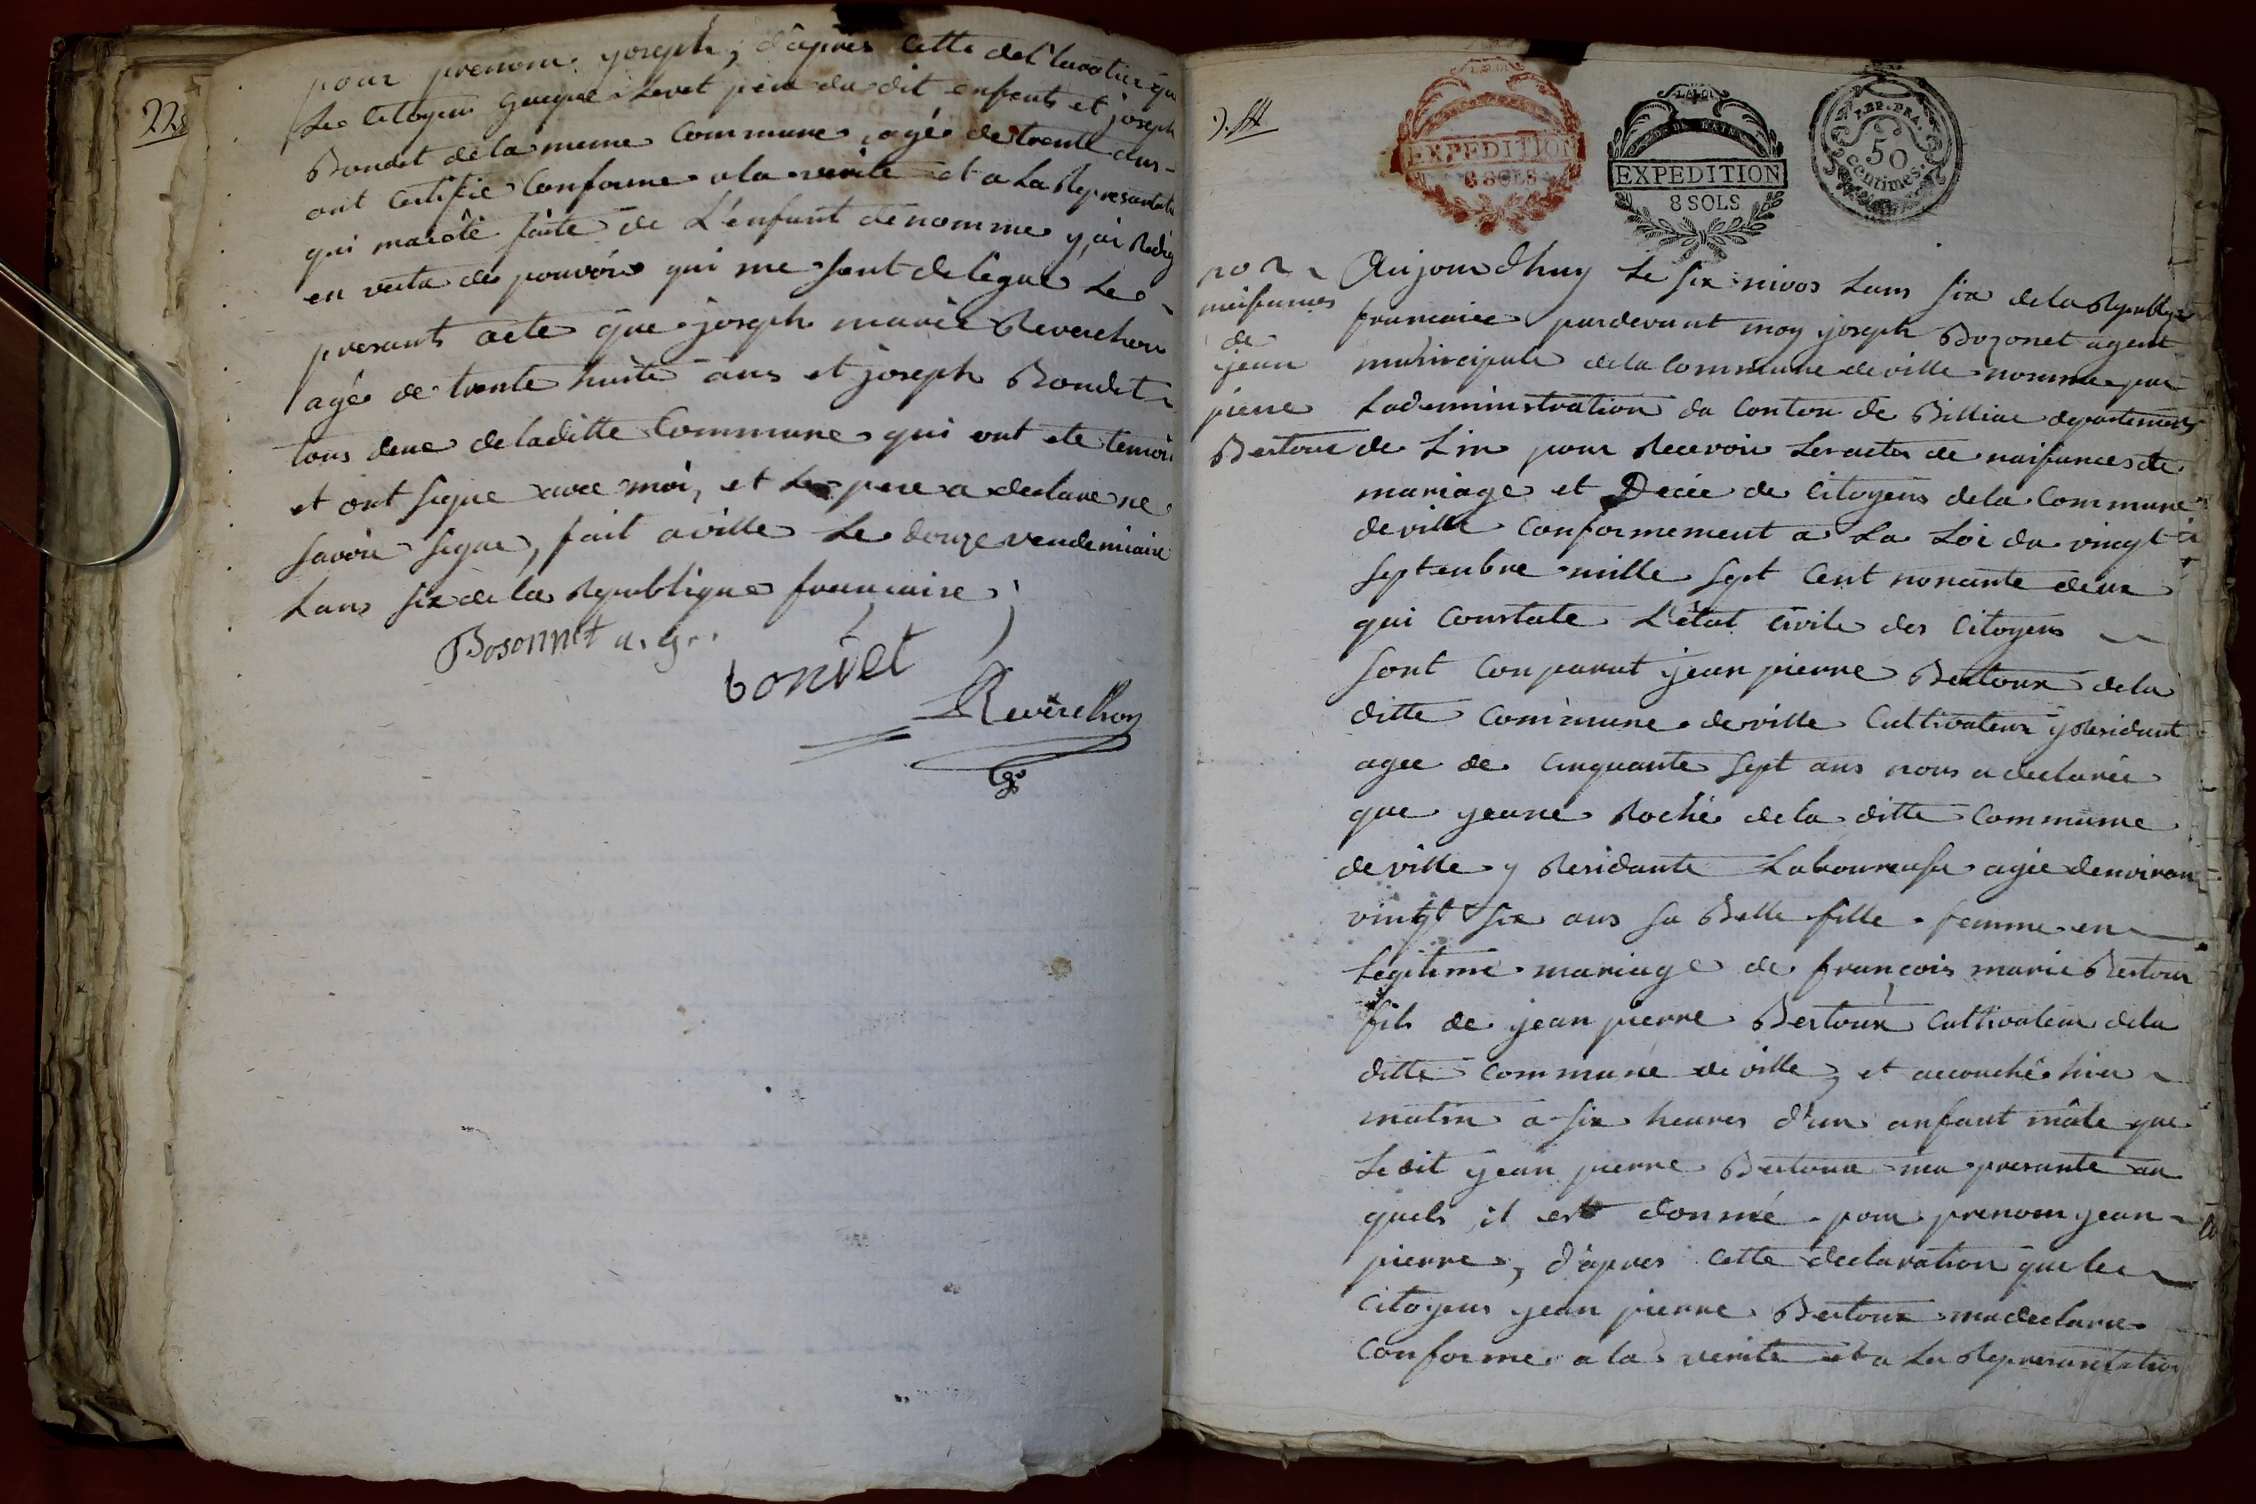 228
pour prenom joseph, d'apres cette declaration que
Les Citoyens Levet pere du dit enfents et joseph
Bondet de la meme Commune, agé de trente ans
ont Certifie Conforme a la verite et a La Represantati
qui ma été faite de L'enfant denomme j'ai Redig
en vertu des pouvoirs qui me sont delegue Le
presants acte que joseph marie Reverchon
agé de trente huite ans et joseph Bondet
tous deux de laditte Commune qui ont ete temoin
et ont signe avec moi, et Le pere a declare ne
savoir signe, fait a ville Le douze vendemiaire
Lans six de la Republique francaise
Bosonnet a. g.
bondet
Reverchon
EXPEDITION
8 SOLS
EXPEDITION
8 SOLS
REP. FRA.
50
centimes
naissances
de
jean
pierre
Bertoux
Aujourdhuy Le six nivos Lans six de la Republique
francaise pardevant moy joseph Bozonet agent
municipale de la Commune de ville nomme par
Ladeministration du Conton de Billiac departements
de Lin pour Recevoir Les actes de naissances de
mariage et Decée de Citoyens de la Commune
de ville Conformement a La Loi du vingt
septenbre mille sept Cent nonante deux
qui Constate L'état Civile des Citoyens
sont Conparut jean pierre Bertoux de la
ditte Commune de ville Cultivateur y Residant
agee de Cinquante sept ans nous a declarée
que jeane Roche de la ditte Commune
de ville y Residante Laboureuse agée denviron
vingt six ans sa Belle fille femme en
Legitime mariage de françois marie Bertoux
fils de jean pierre Bertoux Cultivateur de la
ditte Commune de ville, et accouché hier
matin a six heures d'un anfant mâle que
Le dit jean pierre Bertoux ma presante au
quels il est donné pour prenom jean
pierre, d'apres cette declaration que le
Citoyens jean pierre Bertoux ma declare
Conforme a la verite et a La Represantation